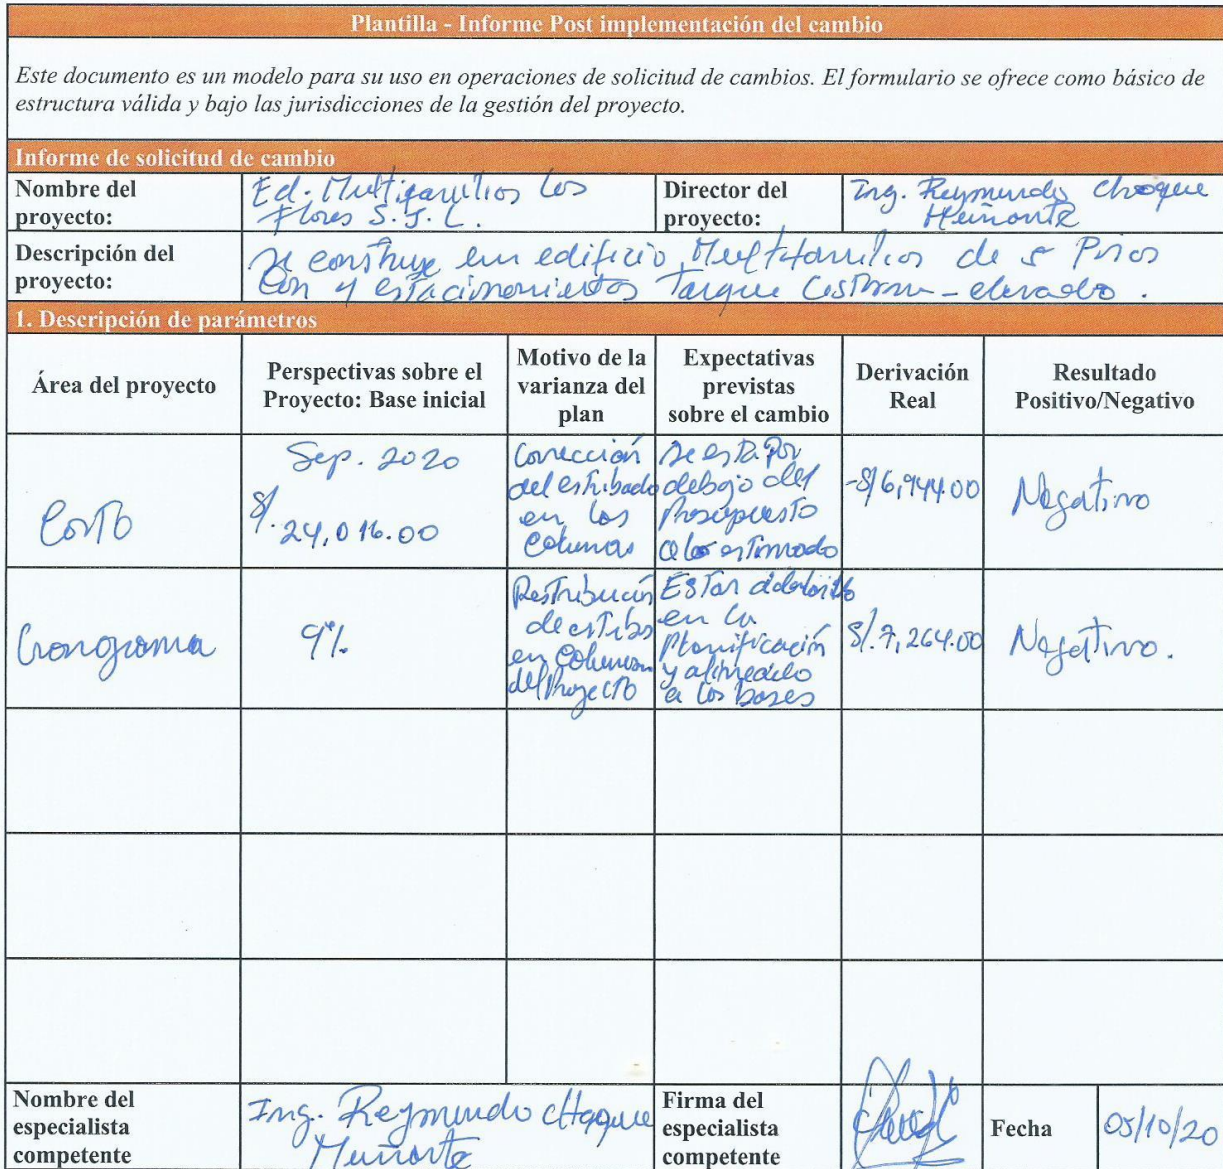 Plantilla - Informe Post implementación del cambio
Este documento es un modelo para su uso en operaciones de solicitud de cambios. El formulario se ofrece como básico de
estructura válida y bajo las jurisdicciones de la gestión del proyecto.
Informe de solicitud de cambio
Nombre del
proyecto:
Ed. Multifamilios Los
Flores S.J.L.
Director del
proyecto:
Ing. Reymundo Choque
Descripción del
proyecto:
se construye un edificio Multifamilios de 5 Pisos
Con 4 estacionamientos Tanque Cisterna - elevado.
1. Descripción de parámetros
Área del proyecto
Perspectivas sobre el
Proyecto: Base inicial
Motivo de la
varianza del
plan
Expectativas
previstas
sobre el cambio
Derivación
Real
Resultado
Positivo/Negativo
Costo
Sep. 2020
S/.
24,016.00
Corrección
del estribado
en los
Columnas
se esta por
debajo del
Presupuesto
a lo estimado
-S/6,944.00
Negativo
Cronograma
9%
de estribos
en Columnas
del Proyecto
Estar
en la
Planificación
y
a los bases
S/.7,264.00
Negativo.
Nombre del
especialista
competente
Ing. Reymundo Choque
Firma del
especialista
competente
Fecha
05/10/20